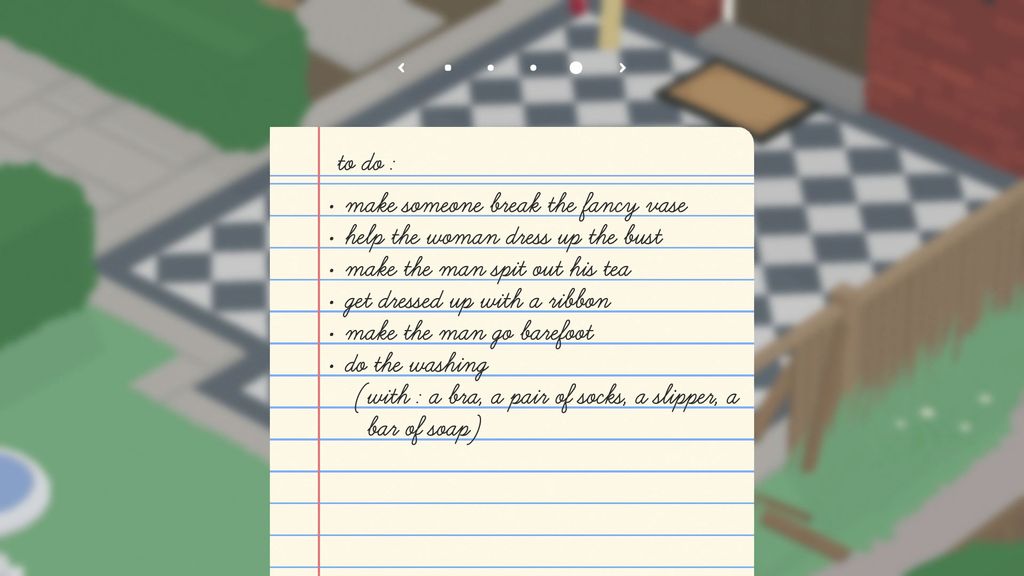 to do :
• make someone break the fancy vase
• help the woman dress up the bust
• make the man spit out his tea
• get dressed up with a ribbon
• make the man go barefoot
• do the washing
(with : a bra, a pair of socks, a slipper, a
bar of soap)